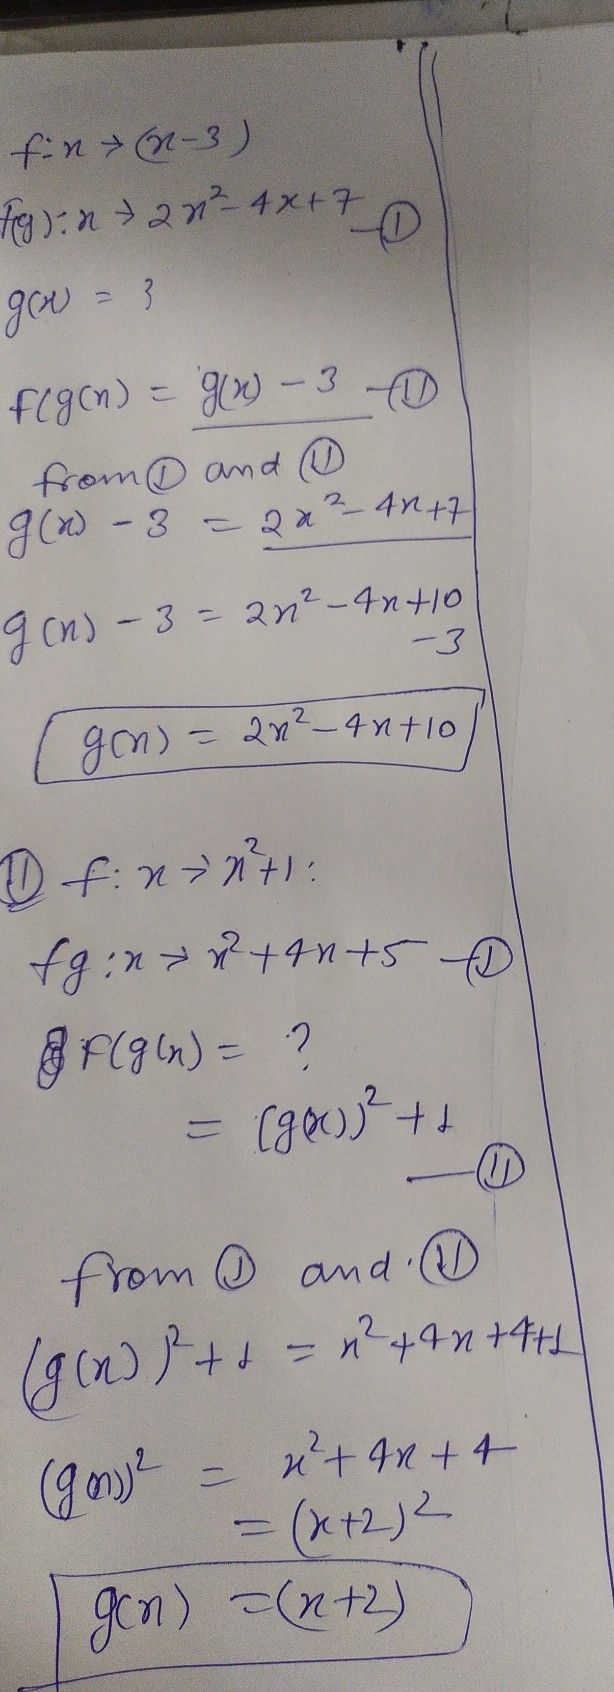 f:x → (x-3)
f(g):x → 2x²-4x+7 —Ⓘ
g(x) = 3
f(g(x) = g(x) - 3 —Ⓘⓘ
from Ⓘ and Ⓘⓘ
g(x) - 3 = 2x²-4x+7
g(x) - 3 = 2x²-4x+10
-3
g(x) = 2x²-4x+10
Ⓘⓘ f: x → x²+1:
fg:x → x²+4x+5 —Ⓘ
F(g(x) = ?
= (g(x))²+1
—Ⓘⓘ
from Ⓘ and. Ⓘⓘ
(g(x))²+1 = x²+4x+4+1
(g(x))² = x²+4x+4
= (x+2)²
g(x) = (x+2)